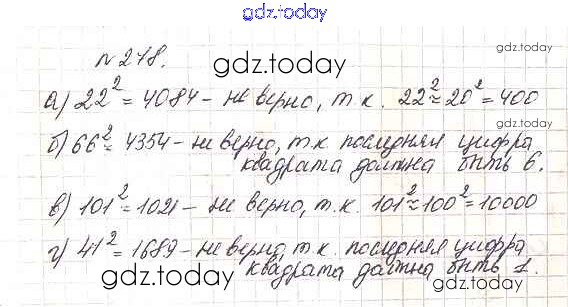 gdz.today
gdz.today
n 278.
gdz.today
а) 22² = 4084 - не верно, т.к. 22² ≈ 20² = 400
б) 66² = 4354 - не верно, т.к последняя цифра
квадрата должна быть 6.
в) 101² = 1021 - не верно, т.к. 101² ≈ 100² = 10000
г) 41² = 1689 - не верно, т.к. последняя цифра
квадрата должна быть 1.
gdz.today
gdz.today